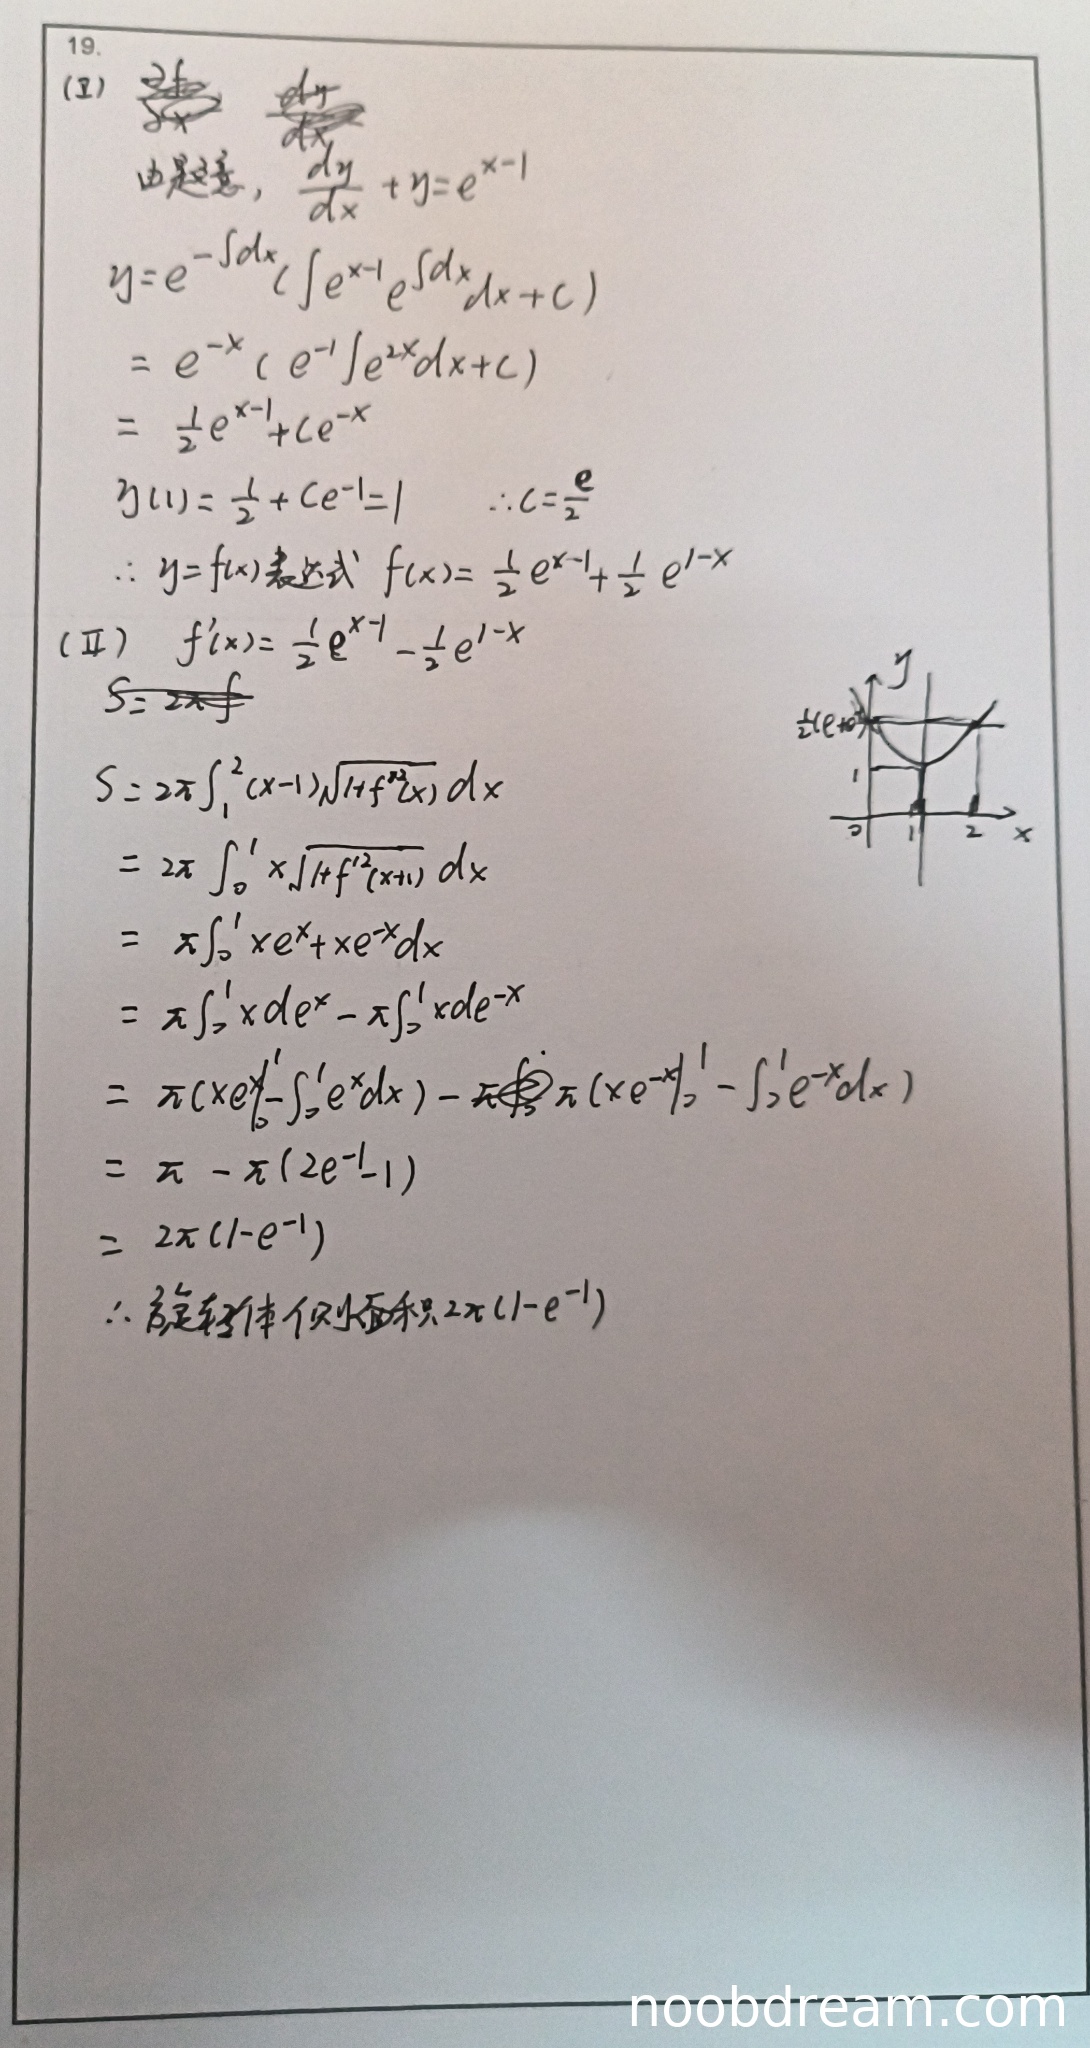 19.
(I)
由题意, dy/dx + y = e^{x-1}
y = e^{-∫dx} (∫e^{x-1} e^{∫dx} dx + C)
= e^{-x} ( e^{-1} ∫e^{2x}dx + C)
= 1/2 e^{x-1} + Ce^{-x}
y(1) = 1/2 + Ce^{-1} = 1 ∴ C = e/2
∴ y=f(x)表达式 f(x) = 1/2 e^{x-1} + 1/2 e^{1-x}
(II) f'(x) = 1/2 e^{x-1} - 1/2 e^{1-x}
S = 2π f
S = 2π ∫_1^2 (x-1)√(1+f'^2(x)) dx
= 2π ∫_0^1 x√(1+f'^2(x+1)) dx
= π∫_0^1 xe^x + xe^{-x}dx
= π∫_0^1 xde^x - π∫_0^1 xde^{-x}
= π(xe^x|_0^1 - ∫_0^1 e^x dx) - π(xe^{-x}|_0^1 - ∫_0^1 e^{-x}dx)
= π - π(2e^{-1} - 1)
= 2π(1-e^{-1})
∴ 旋转体侧面积2π(1-e^{-1})
y
1
0 1 2 x
noobdream.com